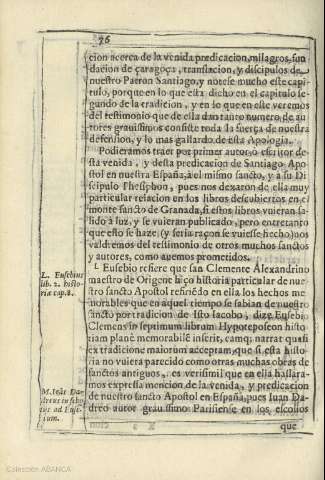 76
cion acerca de la venida predicacion, milagros, fun
dacion de çaragoça, translacion, y discipulos de
nuestro Patron Santiago, y notese mucho este capi
tulo, porque en lo que esta dicho en el capitulo se-
gundo de la tradicion, y en lo que en este veremos
del testimonio que de ella dan tanto numero de au
tores grauissimos consiste toda la fuerça de nuestra
defension, y lo mas gallardo de esta Apologia.
Podieramos traer por primer autor, o escritor de
sta venida, y desta predicacion de Santiago Apo
stol en nuestra España, a el mismo sancto, y a su Di
scipulo Thesiphon, pues nos dexaron de ella muy
particular relacion en los libros descubiertos en el
monte sancto de Granada, si estos libros vuieran sa-
lido à luz, y se vuieran publicado, pero entretanto
que esto se haze, (y seria raçon se vuiesse hecho) nos
valdremos del testimonio de otros muchos sanctos
y autores, como auemos prometidos.
L Eusebio refiere que san Clemente Alexandrino
maestro de Origene hiço historia particular de nue
stro sancto Apostol refiriẽdo en ella los hechos me
morables que en aquel tiempo se sabian de nuestro
sancto por tradicion de Isto Iacobo, dize Eusebio
Clemens in septimum librum Hypoteposeon histo
riam planè memorabilẽ inserit, camq; narrat quasi
ex traditione maiorum acceptam, que si esta histo
ria no vuiera parecido como otras muchas obras de
sanctos antiguos, es verisimil que en ella hallara-
mos expressa mencion de la venida, y predicacion
de nuestro sancto Apostol en España, pues Iuan Da-
dreo autor grauissimo Parisiense en los escolios
que
L. Eusebius
lib. 2. histo
riæ cap. 8.
M. Ioãs Da
dreus in scho
lijs ad Euse
bium.
Colección ABANCA